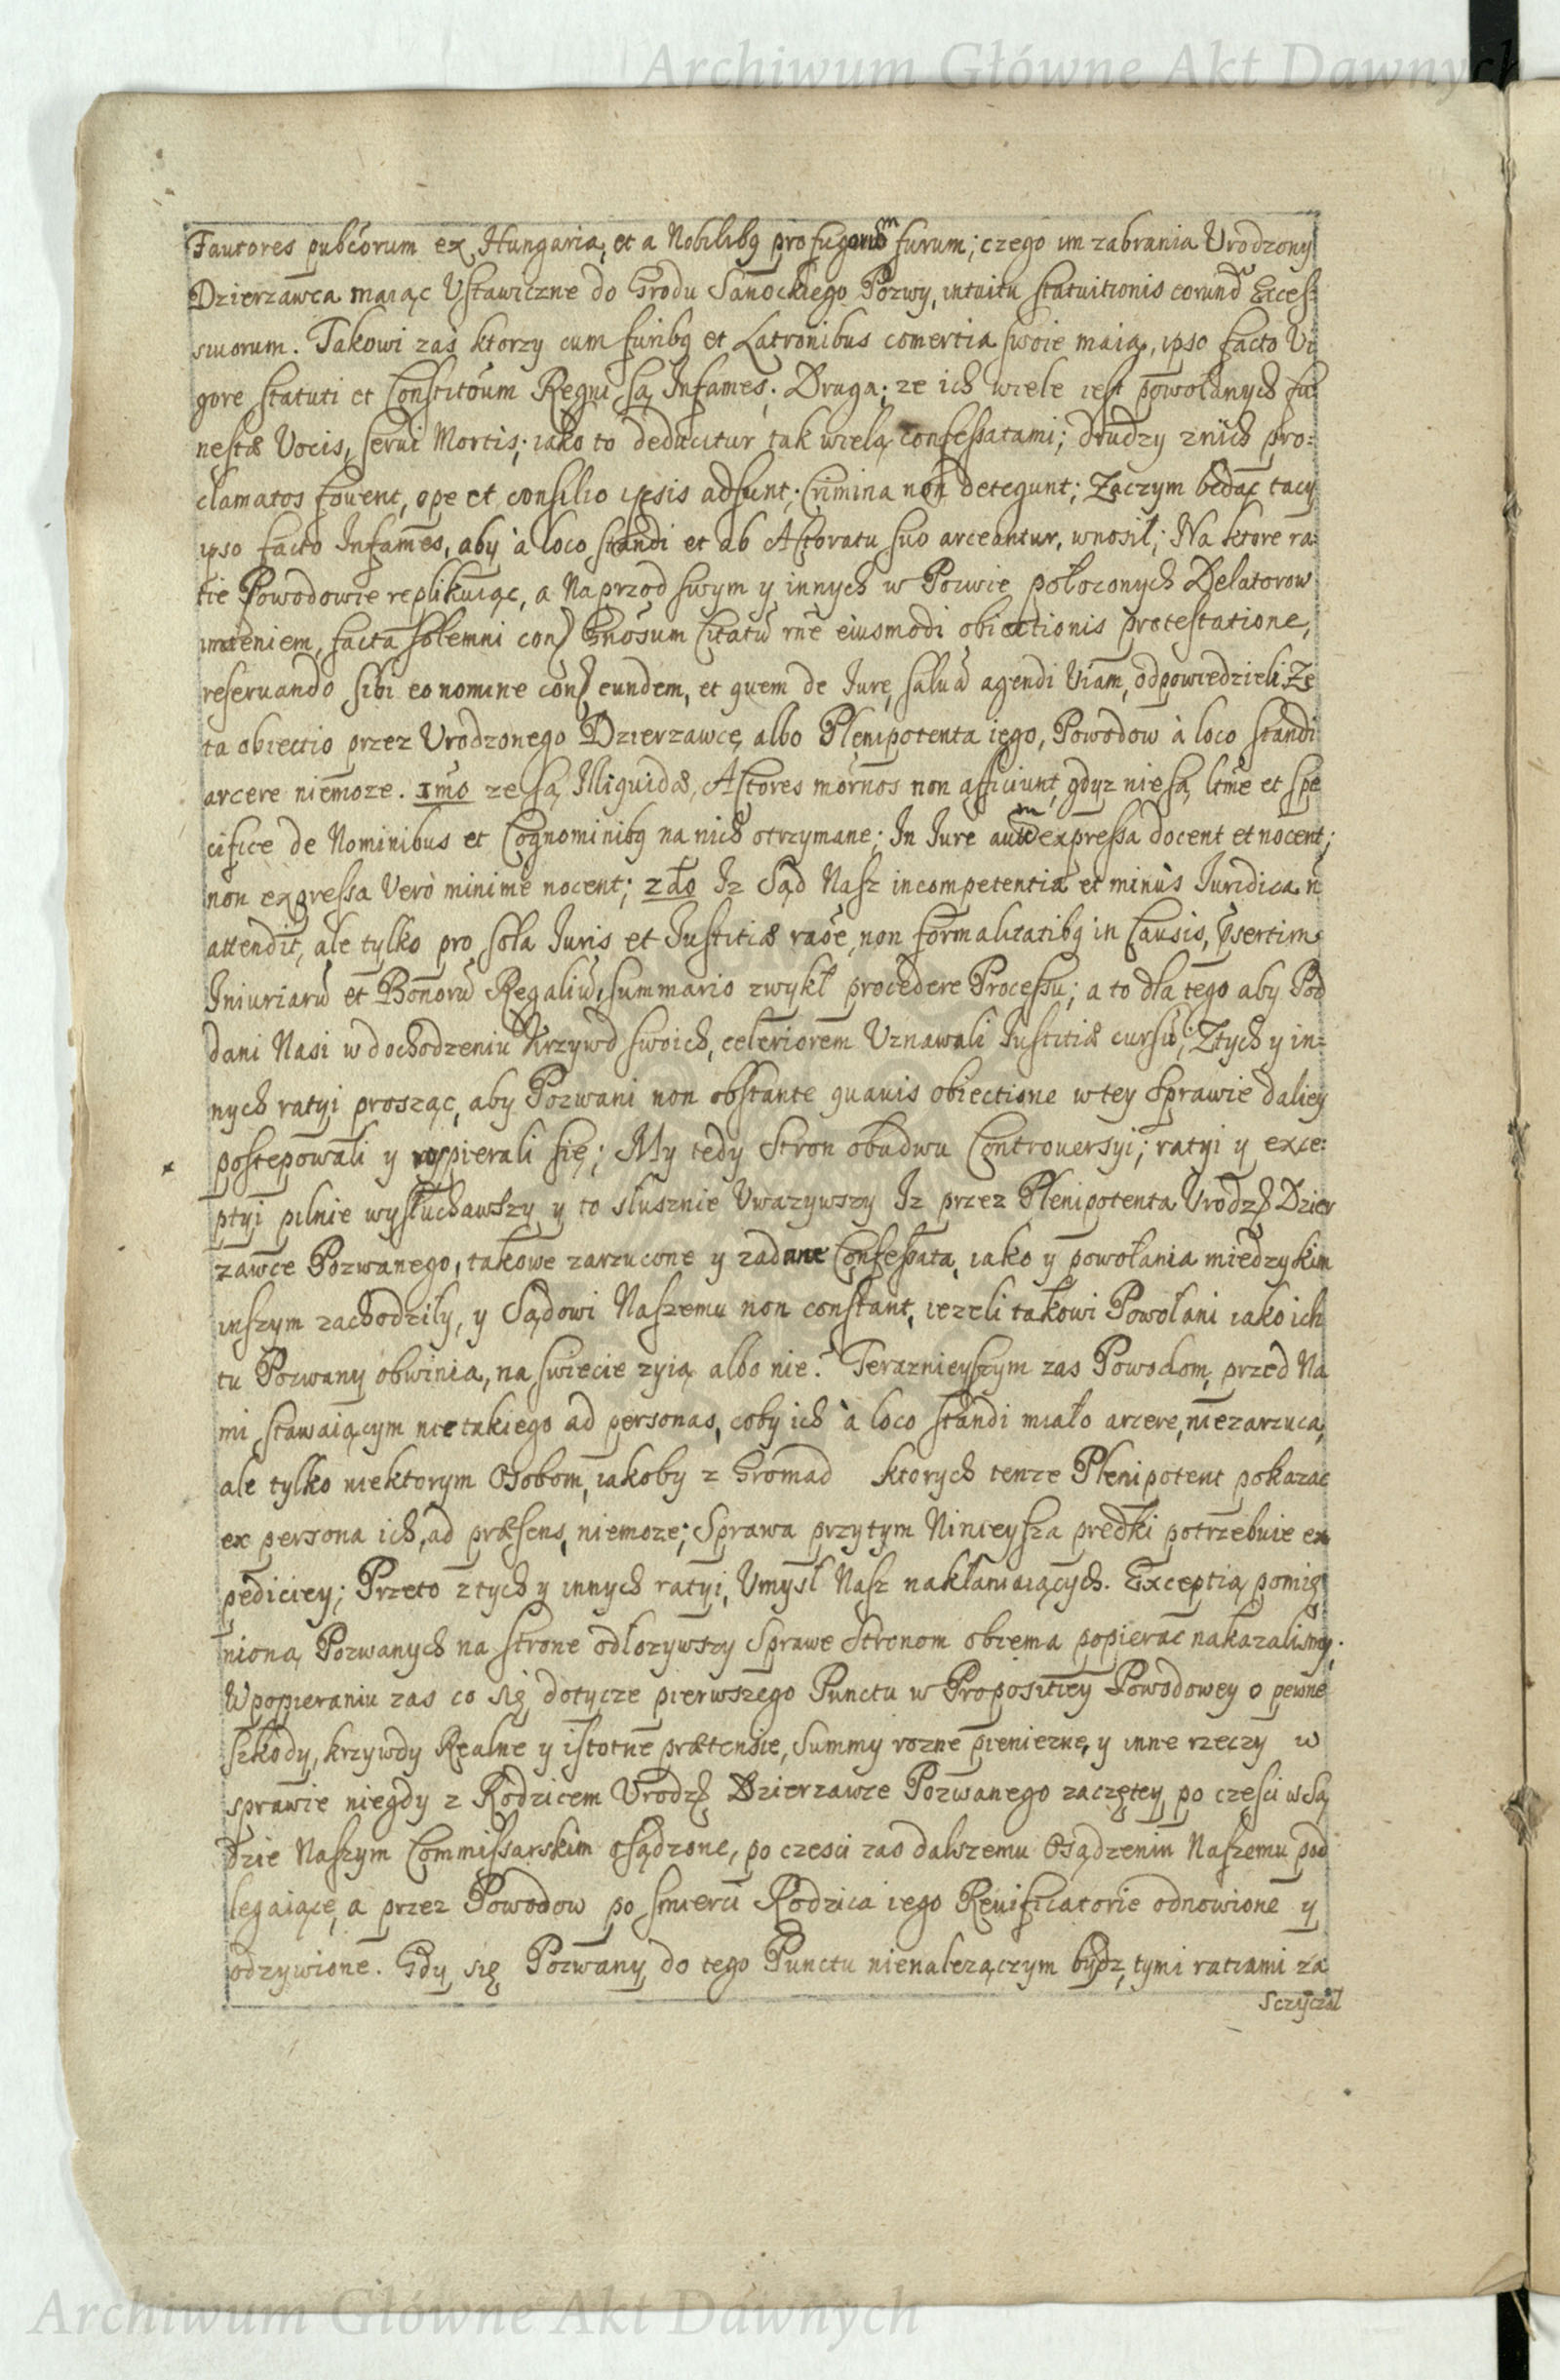 Archiwum Główne Akt Dawnych
Fautores pubcorum ex Hungaria, et a Nobilibq profugorum furum; czego im zabrania Urodzony
Dzierzawca maiąc Ustawiczne do Grodu Sanockiego Pozwy, intuitu statuitionis eorund Exces-
siuorum. Takowi zaś ktorzy cum furibq et Latronibus comertia swoie maią, ipso facto Vi
gore statuti et Constitoum Regni są Infames; Druga; ze ich wiele iest powołanych fu
nestæ Vocis, serui Mortis; iako to deducitur tak wielą confessatami; drudzy znich pro=
clamatos fouent, ope et consilio ipsis adsunt; Crimina non detegunt; Zaczym będąc tacy
ipso facto Infames, aby à loco standi et ab Actoratu suo arceantur, wnosił; Na ktore ra
tie Powodowie replikuiąc, a Naprzod swym y innych w Pozwie położonych Delatorow
imieniem, facta solemni con Gnosum Citatu rne eiusmodi obiectionis protestatione,
reseruando sibi eo nomine con eundem, et quem de Iure, salua agendi Viam, odpowiedzieli Ze
ta obiectio przez Urodzonego Dzierzawcę albo Plenipotenta iego, Powodow à loco standi
arcere niemoze. 1mo ze są Illiquidæ, Actores mornos non afficiunt, gdyz nie są ltme et spe
cifice de Nominibus et Cognominibq na nich otrzymane; In Iure autem expressa docent et nocent;
non expressa Verò minime nocent; 2do Iz Sąd Nasz incompetentia et minùs Iuridica n
attendit, ale tylko pro sola Iuris et Iustitiæ raoe, non formalitatibq in Causis, psertim
Iniuriaru et Bonoru Regaliu, summario zwykł procedere Processu; a to dla tego aby Pod
dani Nasi w dochodzeniu Krzywd swoich, celeriorem Uznawali Iustitiæ cursu; Ztych y in=
nych ratyi prosząc, aby Pozwani non obstante quauis obiectione wtey Sprawie daliey
postępowali y rospierali się; My tedy Stron obudwu Controuersyi; ratyi y exce=
ptyi pilnie wysłuchawszy y to słusznie Uwazywszy Iz przez Plenipotenta Urodz Dzier
zawce Pozwanego, takowe zarzucone y zadane Confessata, iako y powołania miedzy kim
inszym zachodziły, y Sądowi Naszemu non constant, iezeli takowi Powołani iako ich
tu Pozwany obwinia, na swiecie zyią albo nie. Teraznieyszym zas Powodom, przed Na
mi stawaiącym nic takiego ad personas, coby ich à loco standi miało arcere, niezarzuca,
ale tylko niektorym Osobom, iakoby z Gromad ktorych tenze Plenipotent pokazac
ex persona ich, ad præsens, niemoze; Sprawa przytym Ninieysza prędki potrzebuie ex
pediciey; Przeto z tych y innych ratyi, Umysł Nasz nakłaniaiących. Exceptią pomie
nioną Pozwanych na stronę odłozywszy Sprawę Stronom obiema popierac nakazalismy.
W popieraniu zas co się dotycze pierwszego Punctu w Propositiey Powodowey o pewne
szkody, krzywdy Realne y istotne prætensie, Summy rozne pieniezne, y inne rzeczy w
sprawie niegdy z Rodzicem Urodz Dzierzawce Pozwanego zaczętey, po części w Są
dzie Naszym Commissarskim osądzone, po czesci zas dalszemu Osądzeniu Naszemu pod
legaiące, a przez Powodow po smierci Rodzica iego Reuificatorie odnowione y
odzywione. Gdy się Pozwany do tego Punctu nienalezączym bydz, tymi ratiami za
Sczyczał
Archiwum Główne Akt Dawnych